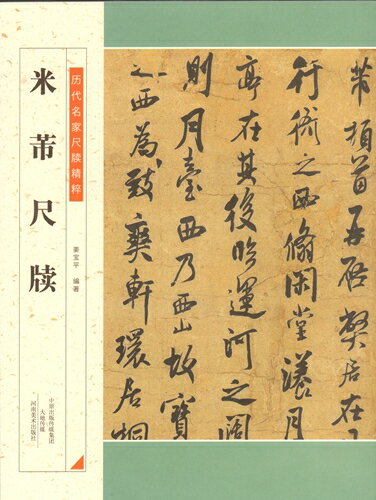 历代名家尺牍精粹
米芾尺牍
姜宝平 编著
芾頓首再啓弊居在
行衙之西翛閑堂漾月
亭在其後臨運河之闊
則月臺西乃西山故寶
之西為致爽軒環居桐
中原出版传媒集团
大地传媒
河南美术出版社